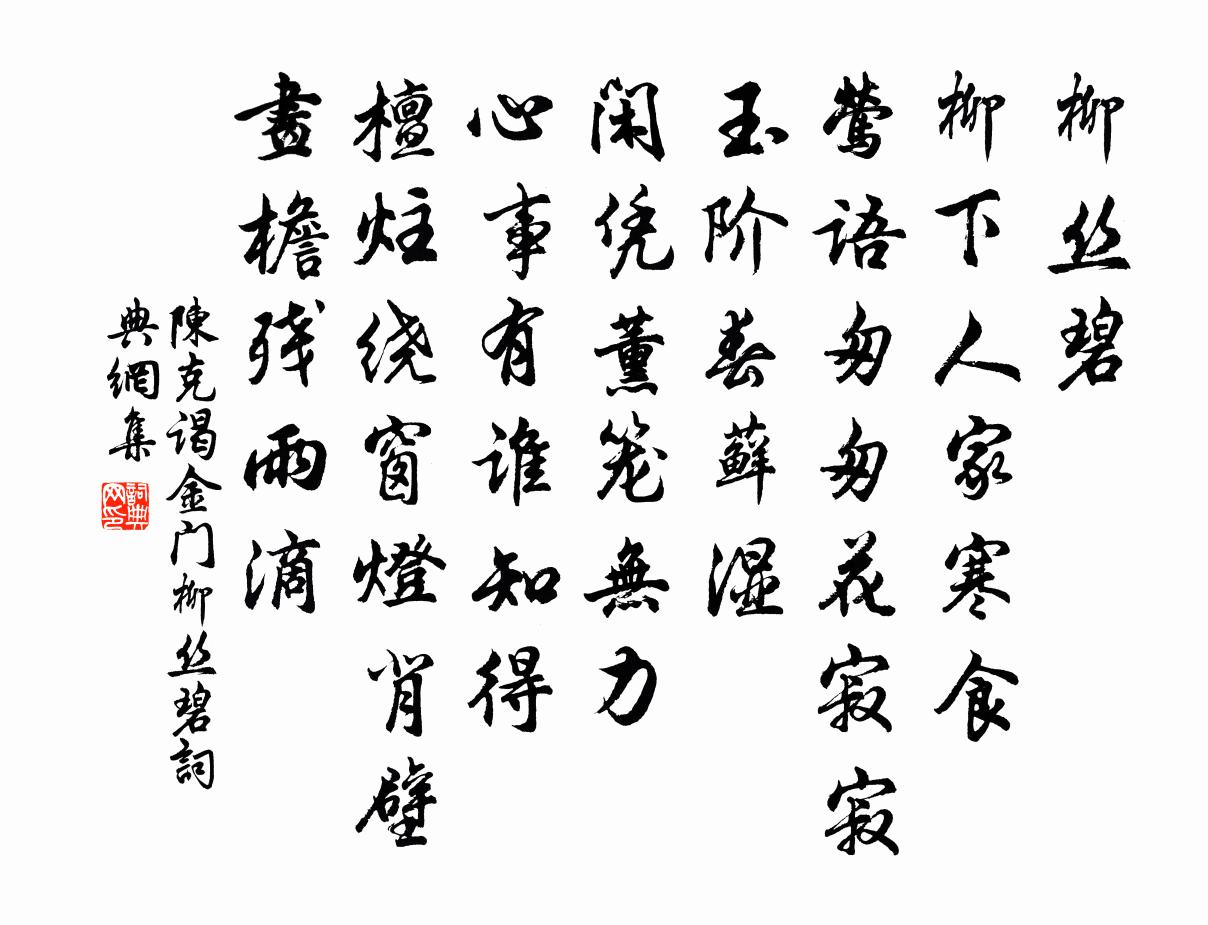 柳丝碧
柳下人家寒食
莺语匆匆花寂寂
玉阶春藓湿
闲凭薰笼無力
心事有谁知得
檀炷绕窗燈背壁
畫檐残雨滴
陳克谒金门柳丝碧詞
典網集
詞典网印